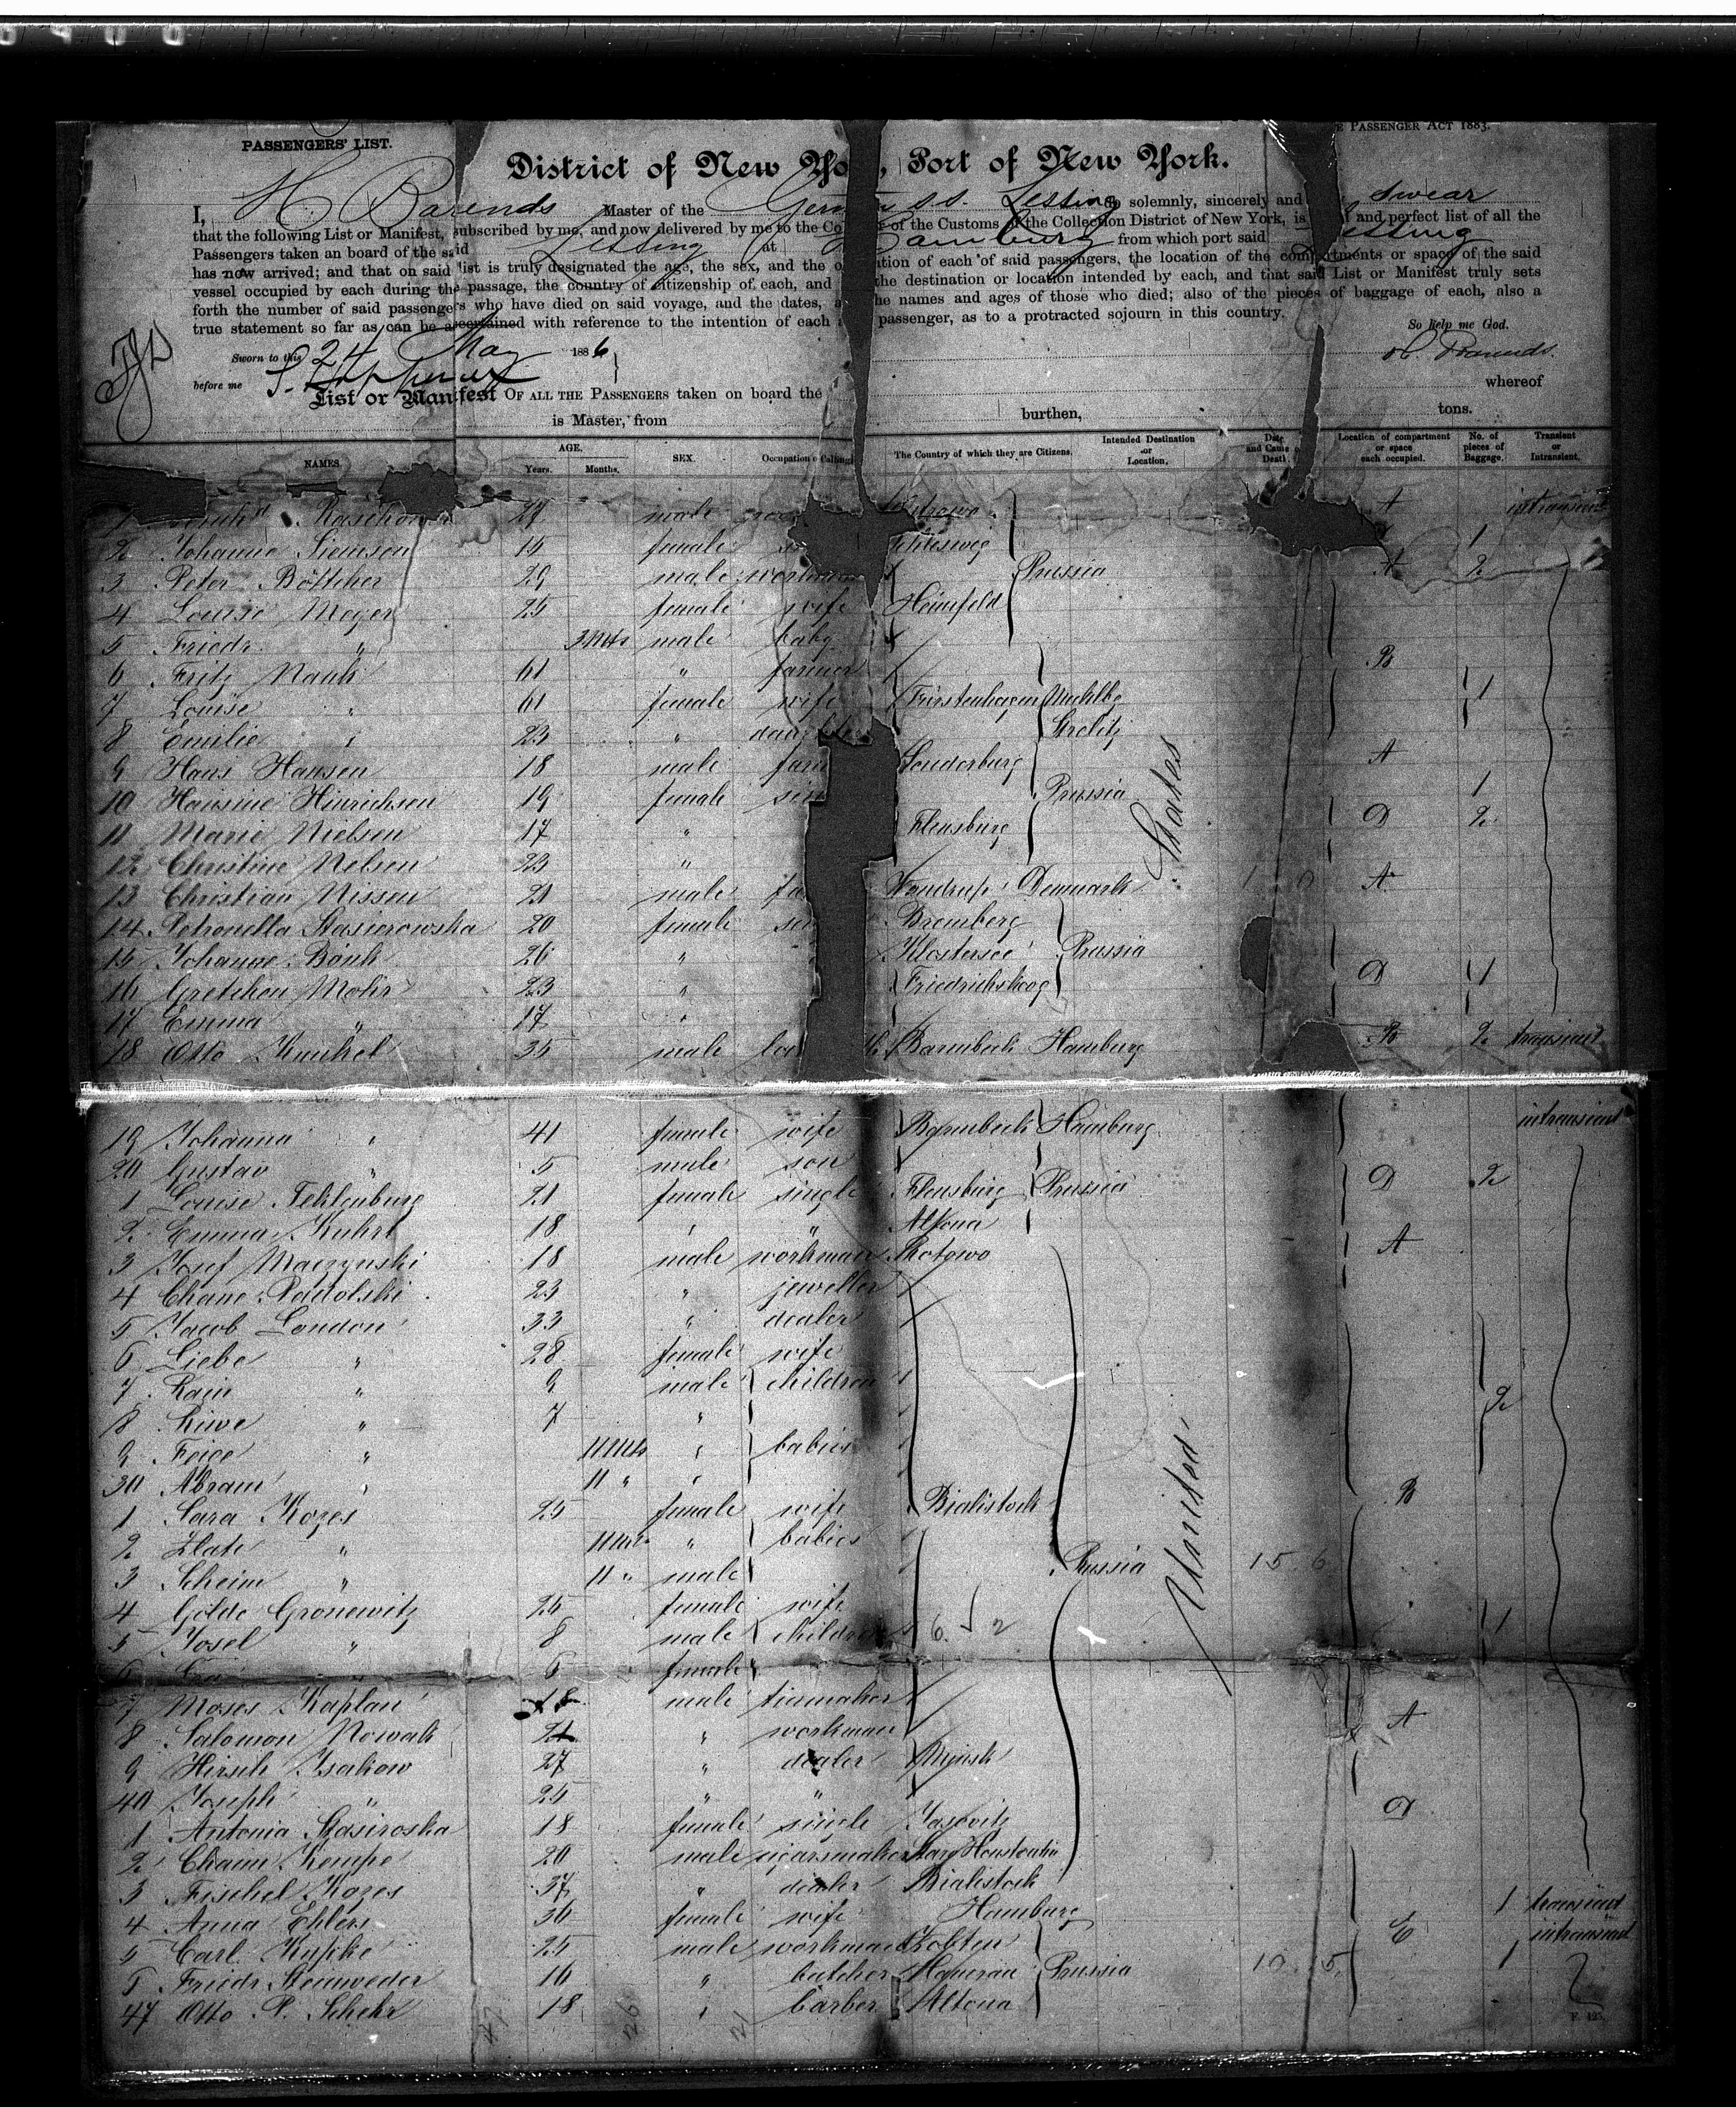 PASSENGERS' LIST.
PASSENGER ACT 1883.
District of New Yo , Port of New York.
I, H. Barends Master of the German s.s. Lessing do solemnly, sincerely and swear
that the following List or Manifest, subscribed by me, and now delivered by me to the Co of the Customs of the Collection District of New York, is and perfect list of all the
Passengers taken on board of the said Lessing at Hamburg from which port said Lessing
has now arrived; and that on said list is truly designated the age, the sex, and the o ation of each of said passengers, the location of the compartments or space of the said
vessel occupied by each during the passage, the country of citizenship of each, and the destination or location intended by each, and that said List or Manifest truly sets
forth the number of said passengers who have died on said voyage, and the dates, a he names and ages of those who died; also of the pieces of baggage of each, also a
true statement so far as can be ascertained with reference to the intention of each passenger, as to a protracted sojourn in this country.
So help me God.
Sworn to this 24 May 1886
H. Barends
before me
whereof
List or Manifest OF ALL THE PASSENGERS taken on board the
is Master, from burthen, tons.
NAMES. AGE. Years. Months. SEX. Occupation or Calling The Country of which they are Citizens. Intended Destination or Location. Date and Cause Death Location of compartment or space each occupied. No. of pieces of Baggage. Transient or Intransient.
27 male A intransient
2 Johanne Siemsen 15 female Schleswig 1
3 Peter Böttcher 29 male workman Prussia A 2
4 Louise Meyer 25 female wife Heimfeld
5 Friedr. " 3 Mts male baby
6 Fritz Nauk 61 " farmer B
7 Louise " 61 female wife Fürstenhagen Mecklbg 1
8 Emilie " 23 " daughter Strelitz
9 Hans Hansen 18 male farm Sonderburg A
10 Hansine Hinrichsen 19 female sin Prussia 1
11 Marie Nielsen 17 " Flensburg D 2
12 Christine Nelsen 23 "
13 Christian Nissen 21 male fa Denmark A
14 Petronella Stasierowska 20 female sin Bromberg
15 Johanne Bouk 26 " Klostersee Prussia
16 Gretchen Mohr 23 " Friedrichskoog D 1
17 Emma " 17 "
18 Otto Kunkel 35 male Barmbeck Hamburg B 2 transient
19 Johanna " 41 female wife Barmbeck Hamburg intransient
20 Gustav " 5 male son
1 Louise Teklenburg 21 female single Flensburg Prussia D 2
2 Emma Kuhrt 18 " " Altona
3 Josef Maczynski 18 male workman A
4 Chane Padolski 23 " jeweller
5 Jacob London 33 " dealer
6 Liebe " 28 female wife
7 " 9 male children
8 " 7 " 2
9 Feige " 11 Mts " babies
30 Abram " 11 " "
1 Sara Kozes 25 female wife Bialistock B
2 Zlate " 11 Mts " babies
3 Scheim " 11 " male Russia 15 6
4 Golde Gronewitz 25 female wife
5 Josel " 8 male children 6 2 1
6 6 female
7 Moses Kaplan 18 male
8 Salomon Nowak 21 " workman A
9 Hirsch Isakow 27 " dealer Minsk
40 Joseph " 25 " "
1 Antonia Stasiroska 18 female single D
2 Chaim Kempe 20 male cigarsmaker
3 Fischel Kozes 37 " dealer Bialistock
4 Anna Ehlers 36 female wife Hamburg 1 transient
5 Carl Kypke 25 male workman E intransient
6 Friedr. Steuweder 16 " butcher Hanerau Prussia 10 5 1
47 Otto P. Schehr 18 " barber Altona
United States
F. 425.